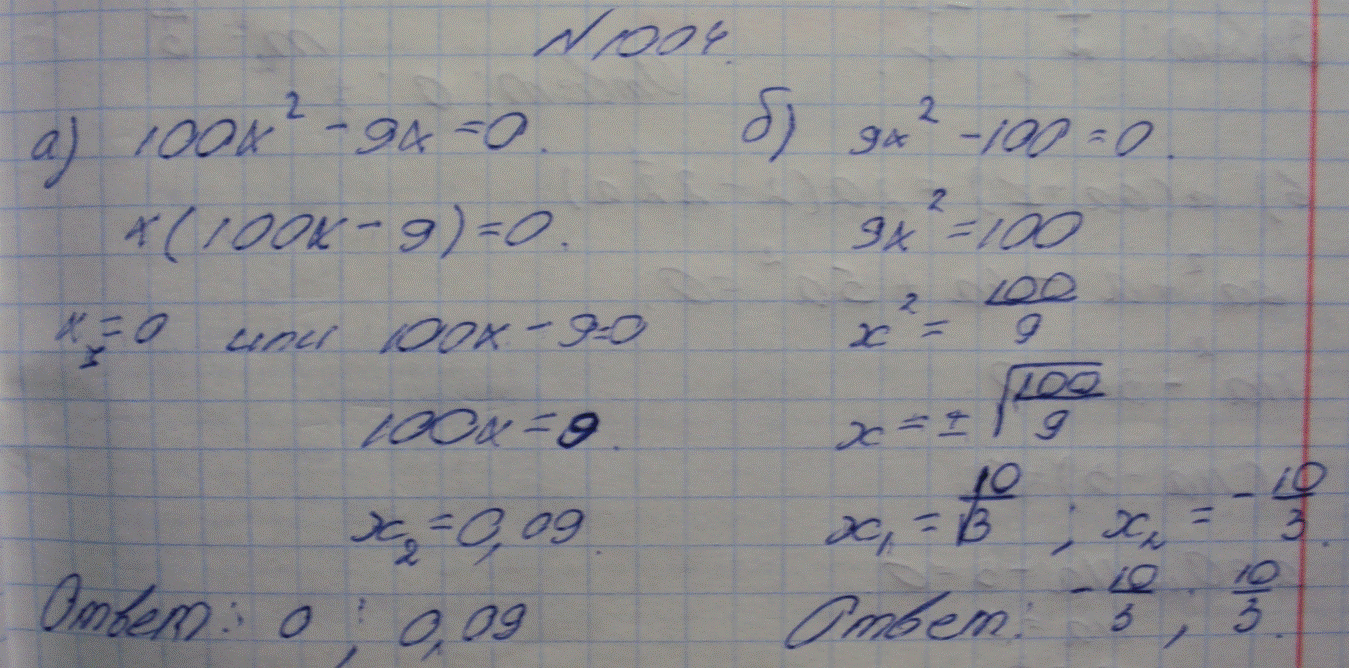 N 1004.
а) 100x² - 9x = 0.
x(100x - 9) = 0.
x₁ = 0 или 100x - 9 = 0
100x = 9.
x₂ = 0,09.
Ответ: 0 ; 0,09
б) 9x² - 100 = 0.
9x² = 100
x² = 100/9
x = ± √(100/9)
x₁ = 10/3 ; x₂ = - 10/3.
Ответ: - 10/3 ; 10/3.